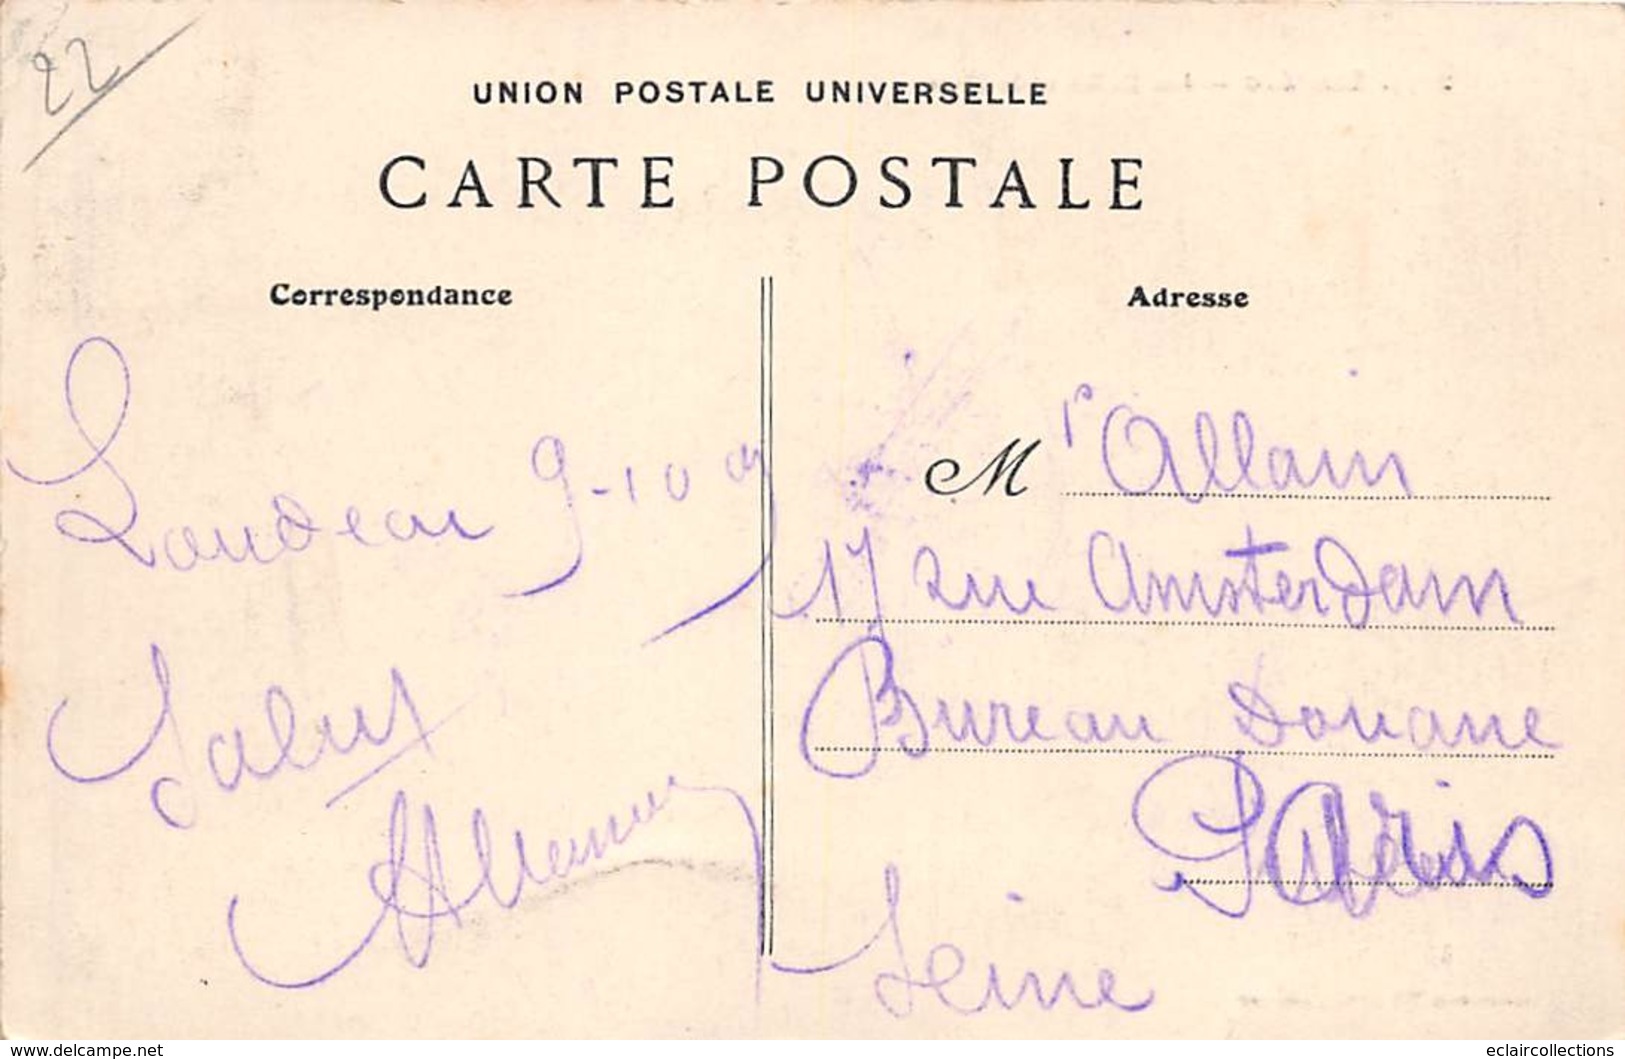 22
UNION POSTALE UNIVERSELLE
CARTE POSTALE
Correspondance
Adresse
Loudeac 9-10 09
Salut
M r Allain
17 rue Amsterdam
Bureau Douane
Paris
Seine
www.delcampe.net
eclaircollections